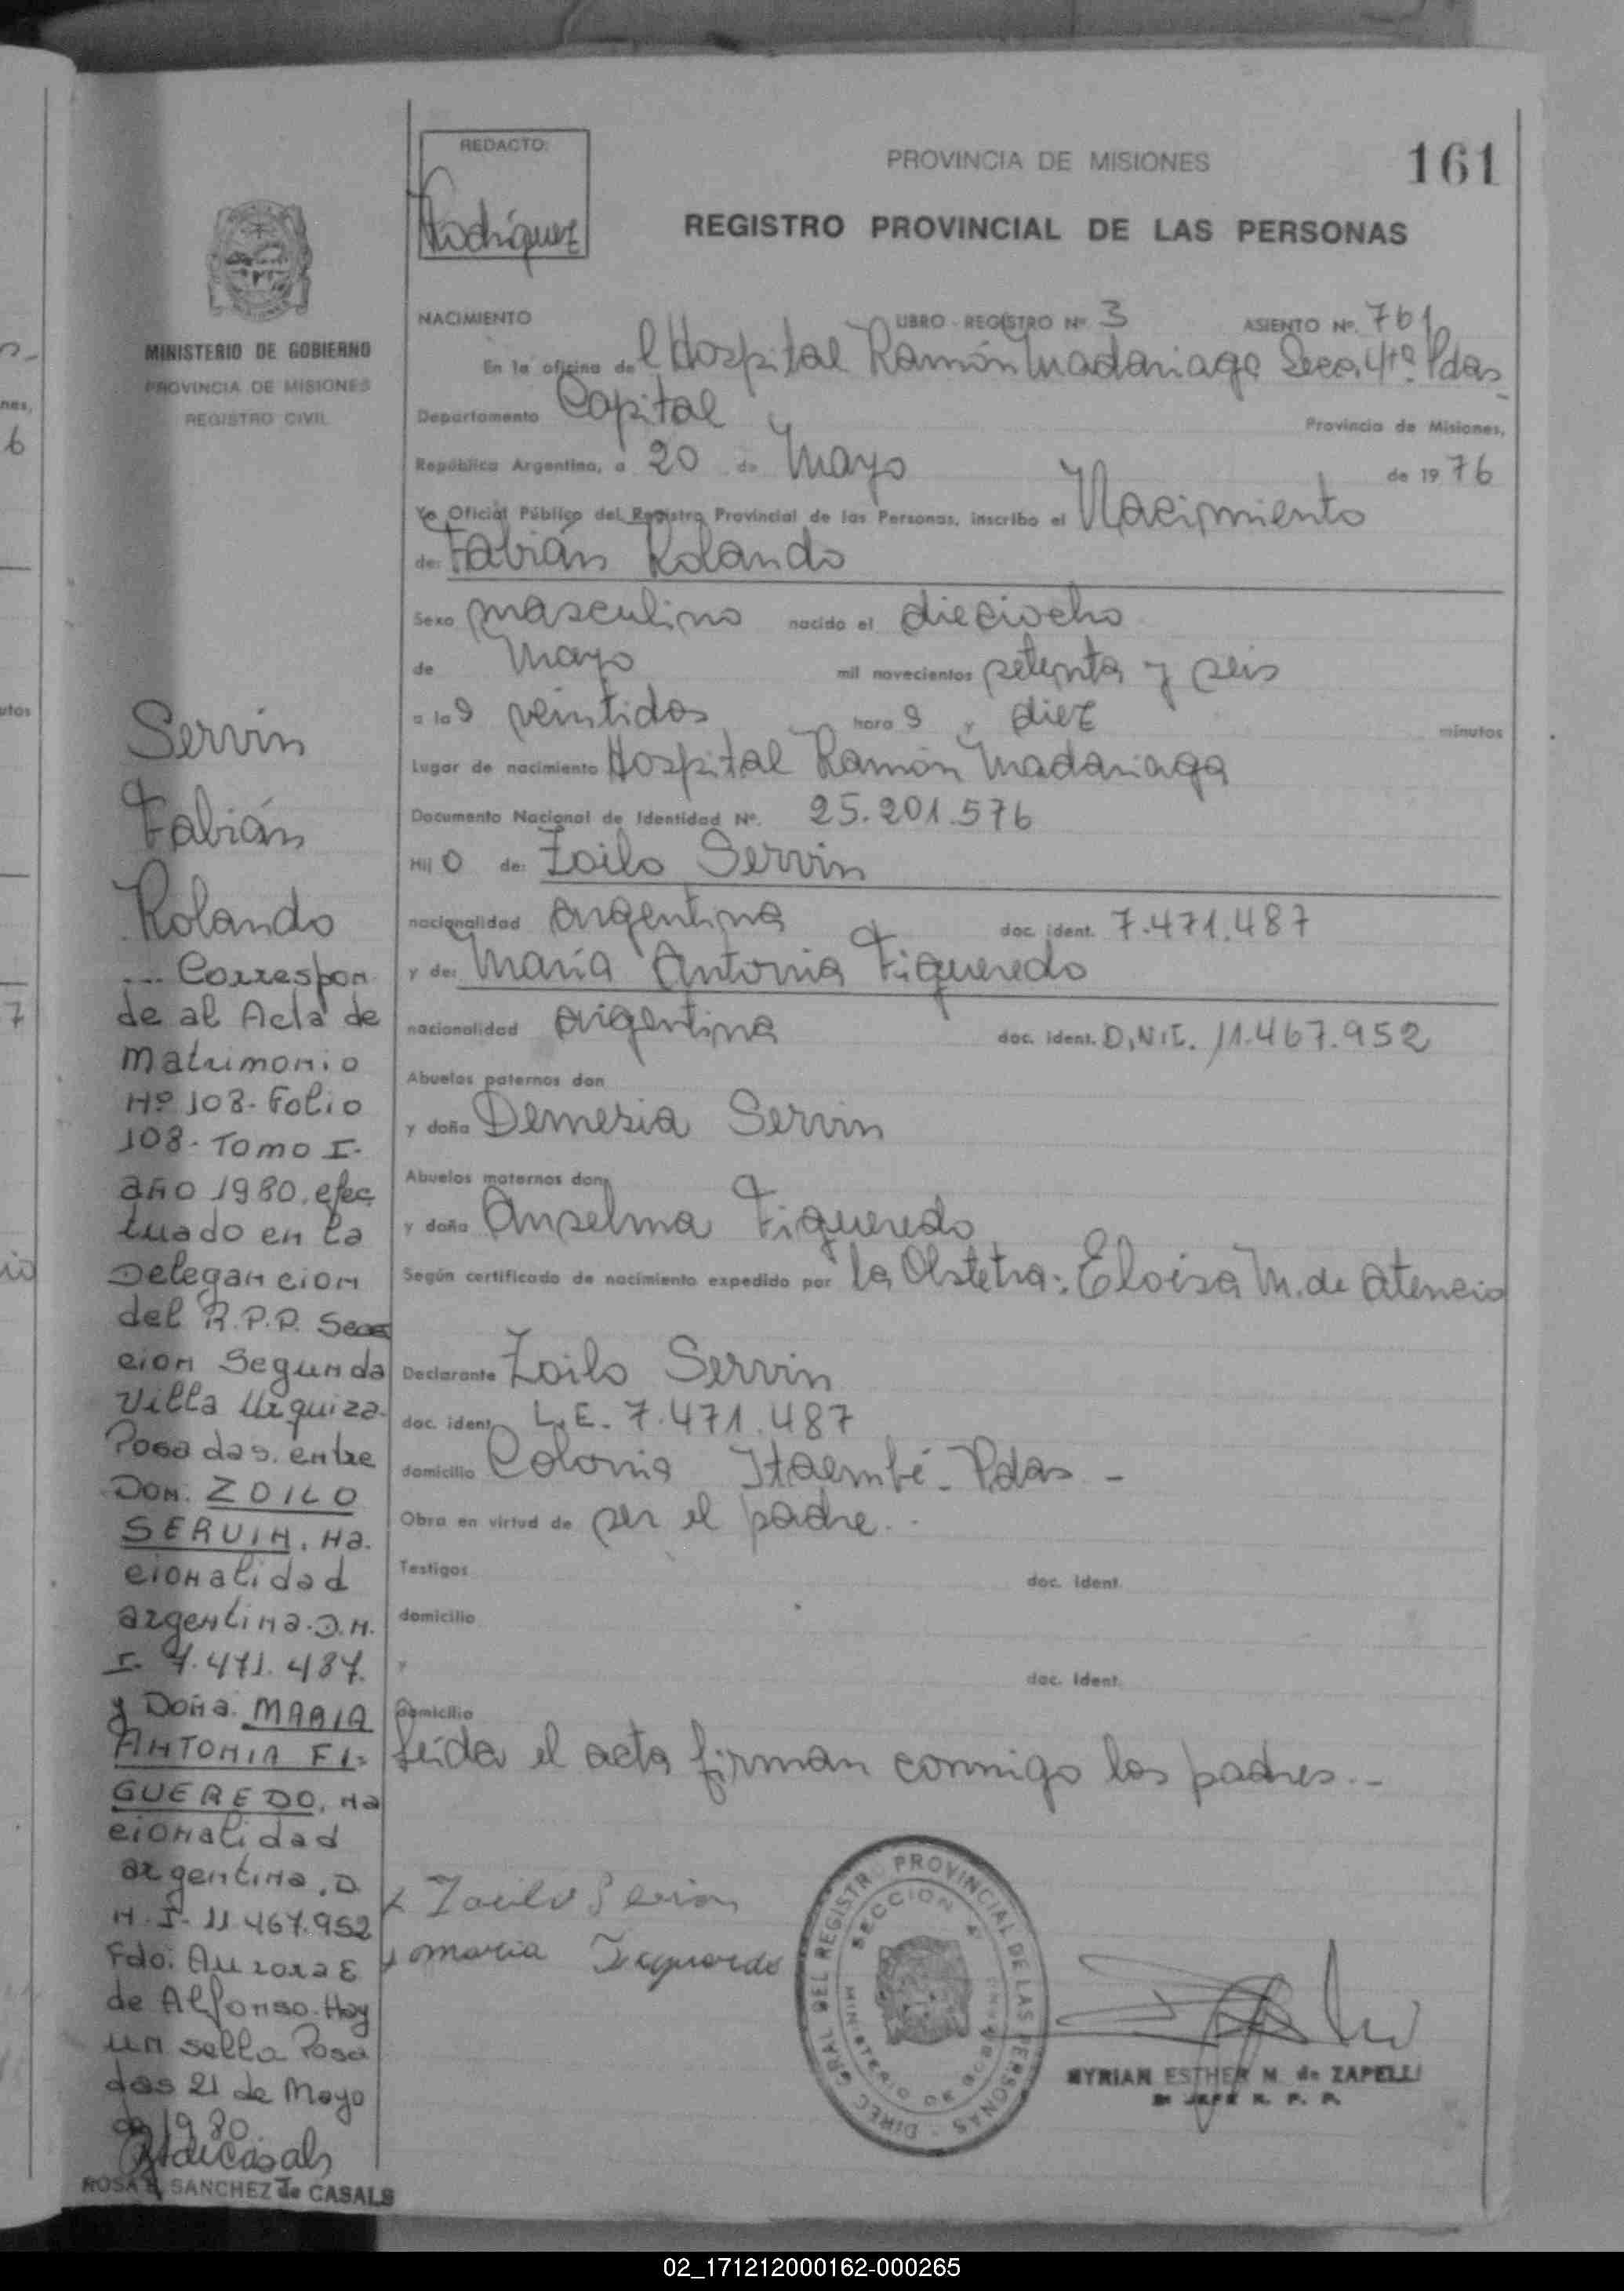 REDACTO:
Rodríguez
PROVINCIA DE MISIONES
161
REGISTRO PROVINCIAL DE LAS PERSONAS
MINISTERIO DE GOBIERNO
PROVINCIA DE MISIONES
REGISTRO CIVIL
NACIMIENTO LIBRO - REGISTRO Nº 3 ASIENTO Nº. 761
En la oficina del Hospital Ramón Madariaga Secc. 4ta. Pdas-
Departamento Capital Provincia de Misiones,
República Argentina, a 20 de Mayo de 1976
Yo Oficial Público del Registro Provincial de las Personas, inscribo el Nacimiento
de: Fabián Rolando
Sexo masculino nacido el dieciocho
de Mayo mil novecientos setenta y seis
a las veintidos horas y diez minutos
Lugar de nacimiento Hospital Ramón Madariaga
Documento Nacional de Identidad Nº. 25.201.576
Hijo de: Zoilo Servin
nacionalidad argentina doc. ident. 7.471.487
y de: María Antonia Figueredo
nacionalidad argentina doc. ident. D.N.I. 11.467.952
Abuelos paternos don
y doña Demesia Servin
Abuelos maternos don
y doña Anselma Figueredo
Según certificado de nacimiento expedido por la Obstetra: Eloisa M. de Atencio
Declarante Zoilo Servin
doc. ident. L.E. 7.471.487
domicilio Colonia Itaembé - Pdas -
Obra en virtud de ser el padre.-
Testigos doc. ident.
domicilio
y doc. ident.
domicilio
Leida el acta firman conmigo los padres.-
Servín
Fabián
Rolando
... Correspon
de al Acta de
Matrimonio
Nº 108- Folio
108- Tomo I-
año 1980, efec
tuado en la
Delegancion
del R.P.P. Secc
cion Segunda
Villa Urquiza-
Posadas. entre
Don. ZOILO
SERVIN, na-
cionalidad
argentina. D.N.
I- 7.471.487.
y Doña. MARIA
ANTONIA FI=
GUEREDO, na
cionalidad
argentina, D
N.I- 11.467.952
Fdo: Aurora E
de Alfonso. Hay
un sello Posa
das 21 de Mayo
de 1980.
ROSA SANCHEZ de CASALS
x Zoilo Servin
x maria
DIREC. GRAL. DEL REGISTRO PROVINCIAL DE LAS PERSONAS
SECCION 4ª
MINISTERIO DE GOBIERNO
MYRIAN ESTHER N. de ZAPELLI
JEFE R. P. P.
02_171212000162-000265